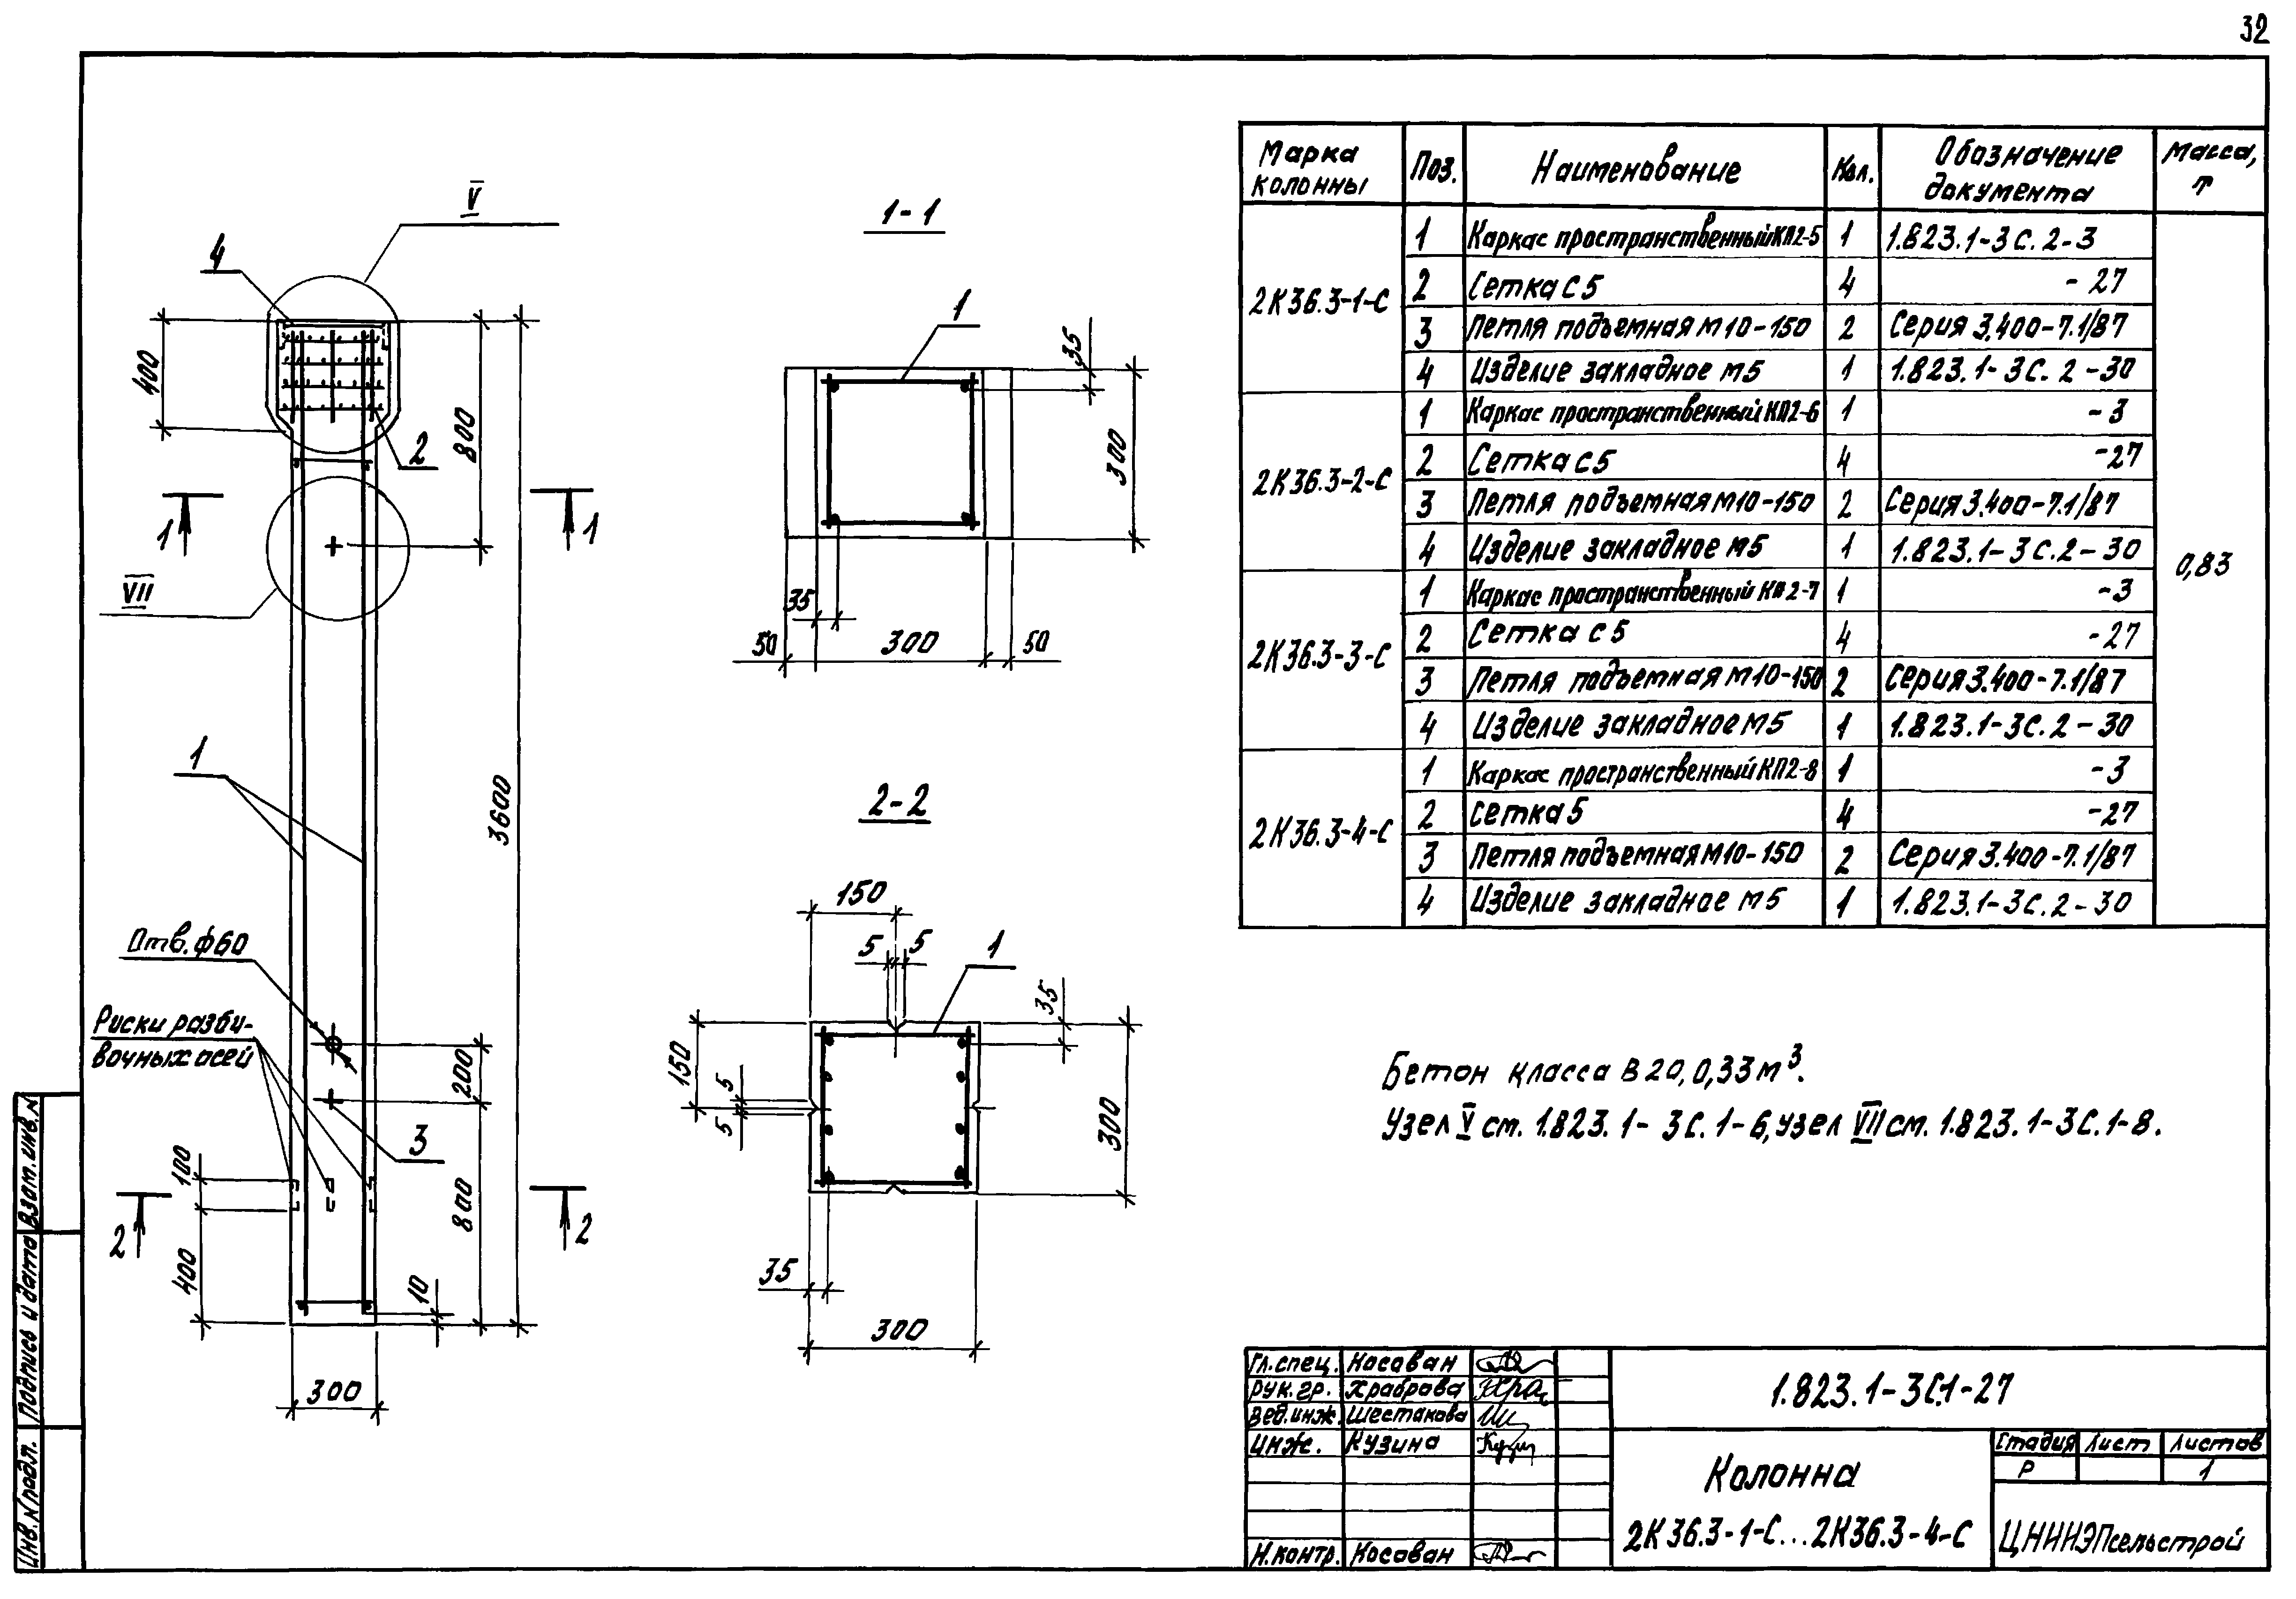 32
V
4
400
2
800
1
1
VII
3600
1
Отв. ф60
Риски разби-
вочных осей
200
3
100
800
2
2
400
10
300
1-1
1
35
300
35
50
300
50
2-2
150
5
5
1
35
150
5
5
300
35
300
Марка колонны
Поз.
Наименование
Кол.
Обозначение документа
Масса, т
2К36.3-1-С
1 Каркас пространственный КП2-5 1 1.823.1-3С.2-3
2 Сетка С5 4 -27
3 Петля подъемная М10-150 2 Серия 3.400-7.1/87
4 Изделие закладное М5 1 1.823.1-3С.2-30
2К36.3-2-С
1 Каркас пространственный КП2-6 1 -3
2 Сетка С5 4 -27
3 Петля подъемная М10-150 2 Серия 3.400-7.1/87
4 Изделие закладное М5 1 1.823.1-3С.2-30
0,83
2К36.3-3-С
1 Каркас пространственный КП2-7 1 -3
2 Сетка С5 4 -27
3 Петля подъемная М10-150 2 Серия 3.400-7.1/87
4 Изделие закладное М5 1 1.823.1-3С.2-30
2К36.3-4-С
1 Каркас пространственный КП2-8 1 -3
2 сетка 5 4 -27
3 Петля подъемная М10-150 2 Серия 3.400-7.1/87
4 Изделие закладное М5 1 1.823.1-3С.2-30
Бетон класса В20, 0,33 м³.
Узел V см. 1.823.1-3С.1-6, узел VII см. 1.823.1-3С.1-8.
Гл. спец. Косован
Рук. гр. Храброва
Вед. инж. Шестакова
Инж. Кузина
Н. контр. Косован
1.823.1-3С.1-27
Колонна
2К36.3-1-С...2К36.3-4-С
Стадия Лист Листов
Р 1
ЦНИИЭПсельстрой
Инв. № подл.
Подпись и дата
Взам. инв. №